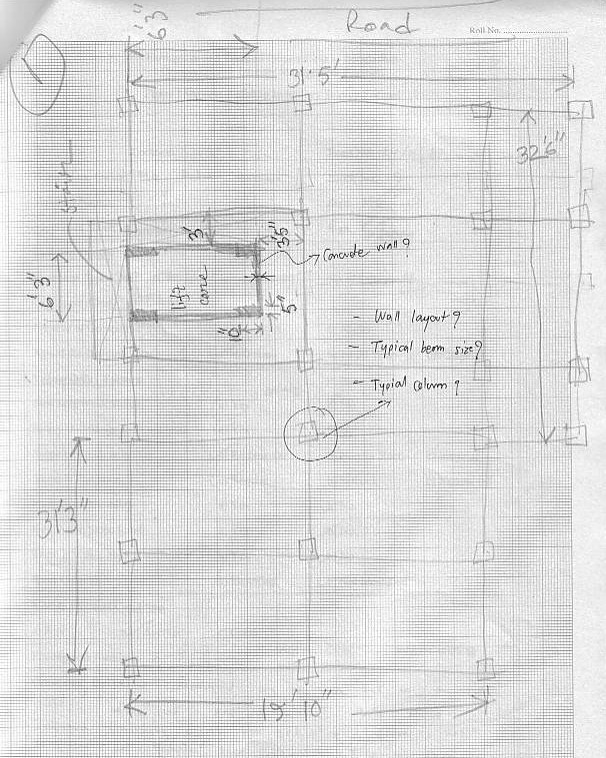 Road
Roll No. ..............................
6'3"
31.5'
32'6"
stair
3'
3.5"
Concrete wall ?
6'3"
lift
core
5"
10"
- Wall layout ?
- Typical beam size ?
- Typical column ?
31'3"
19'10"